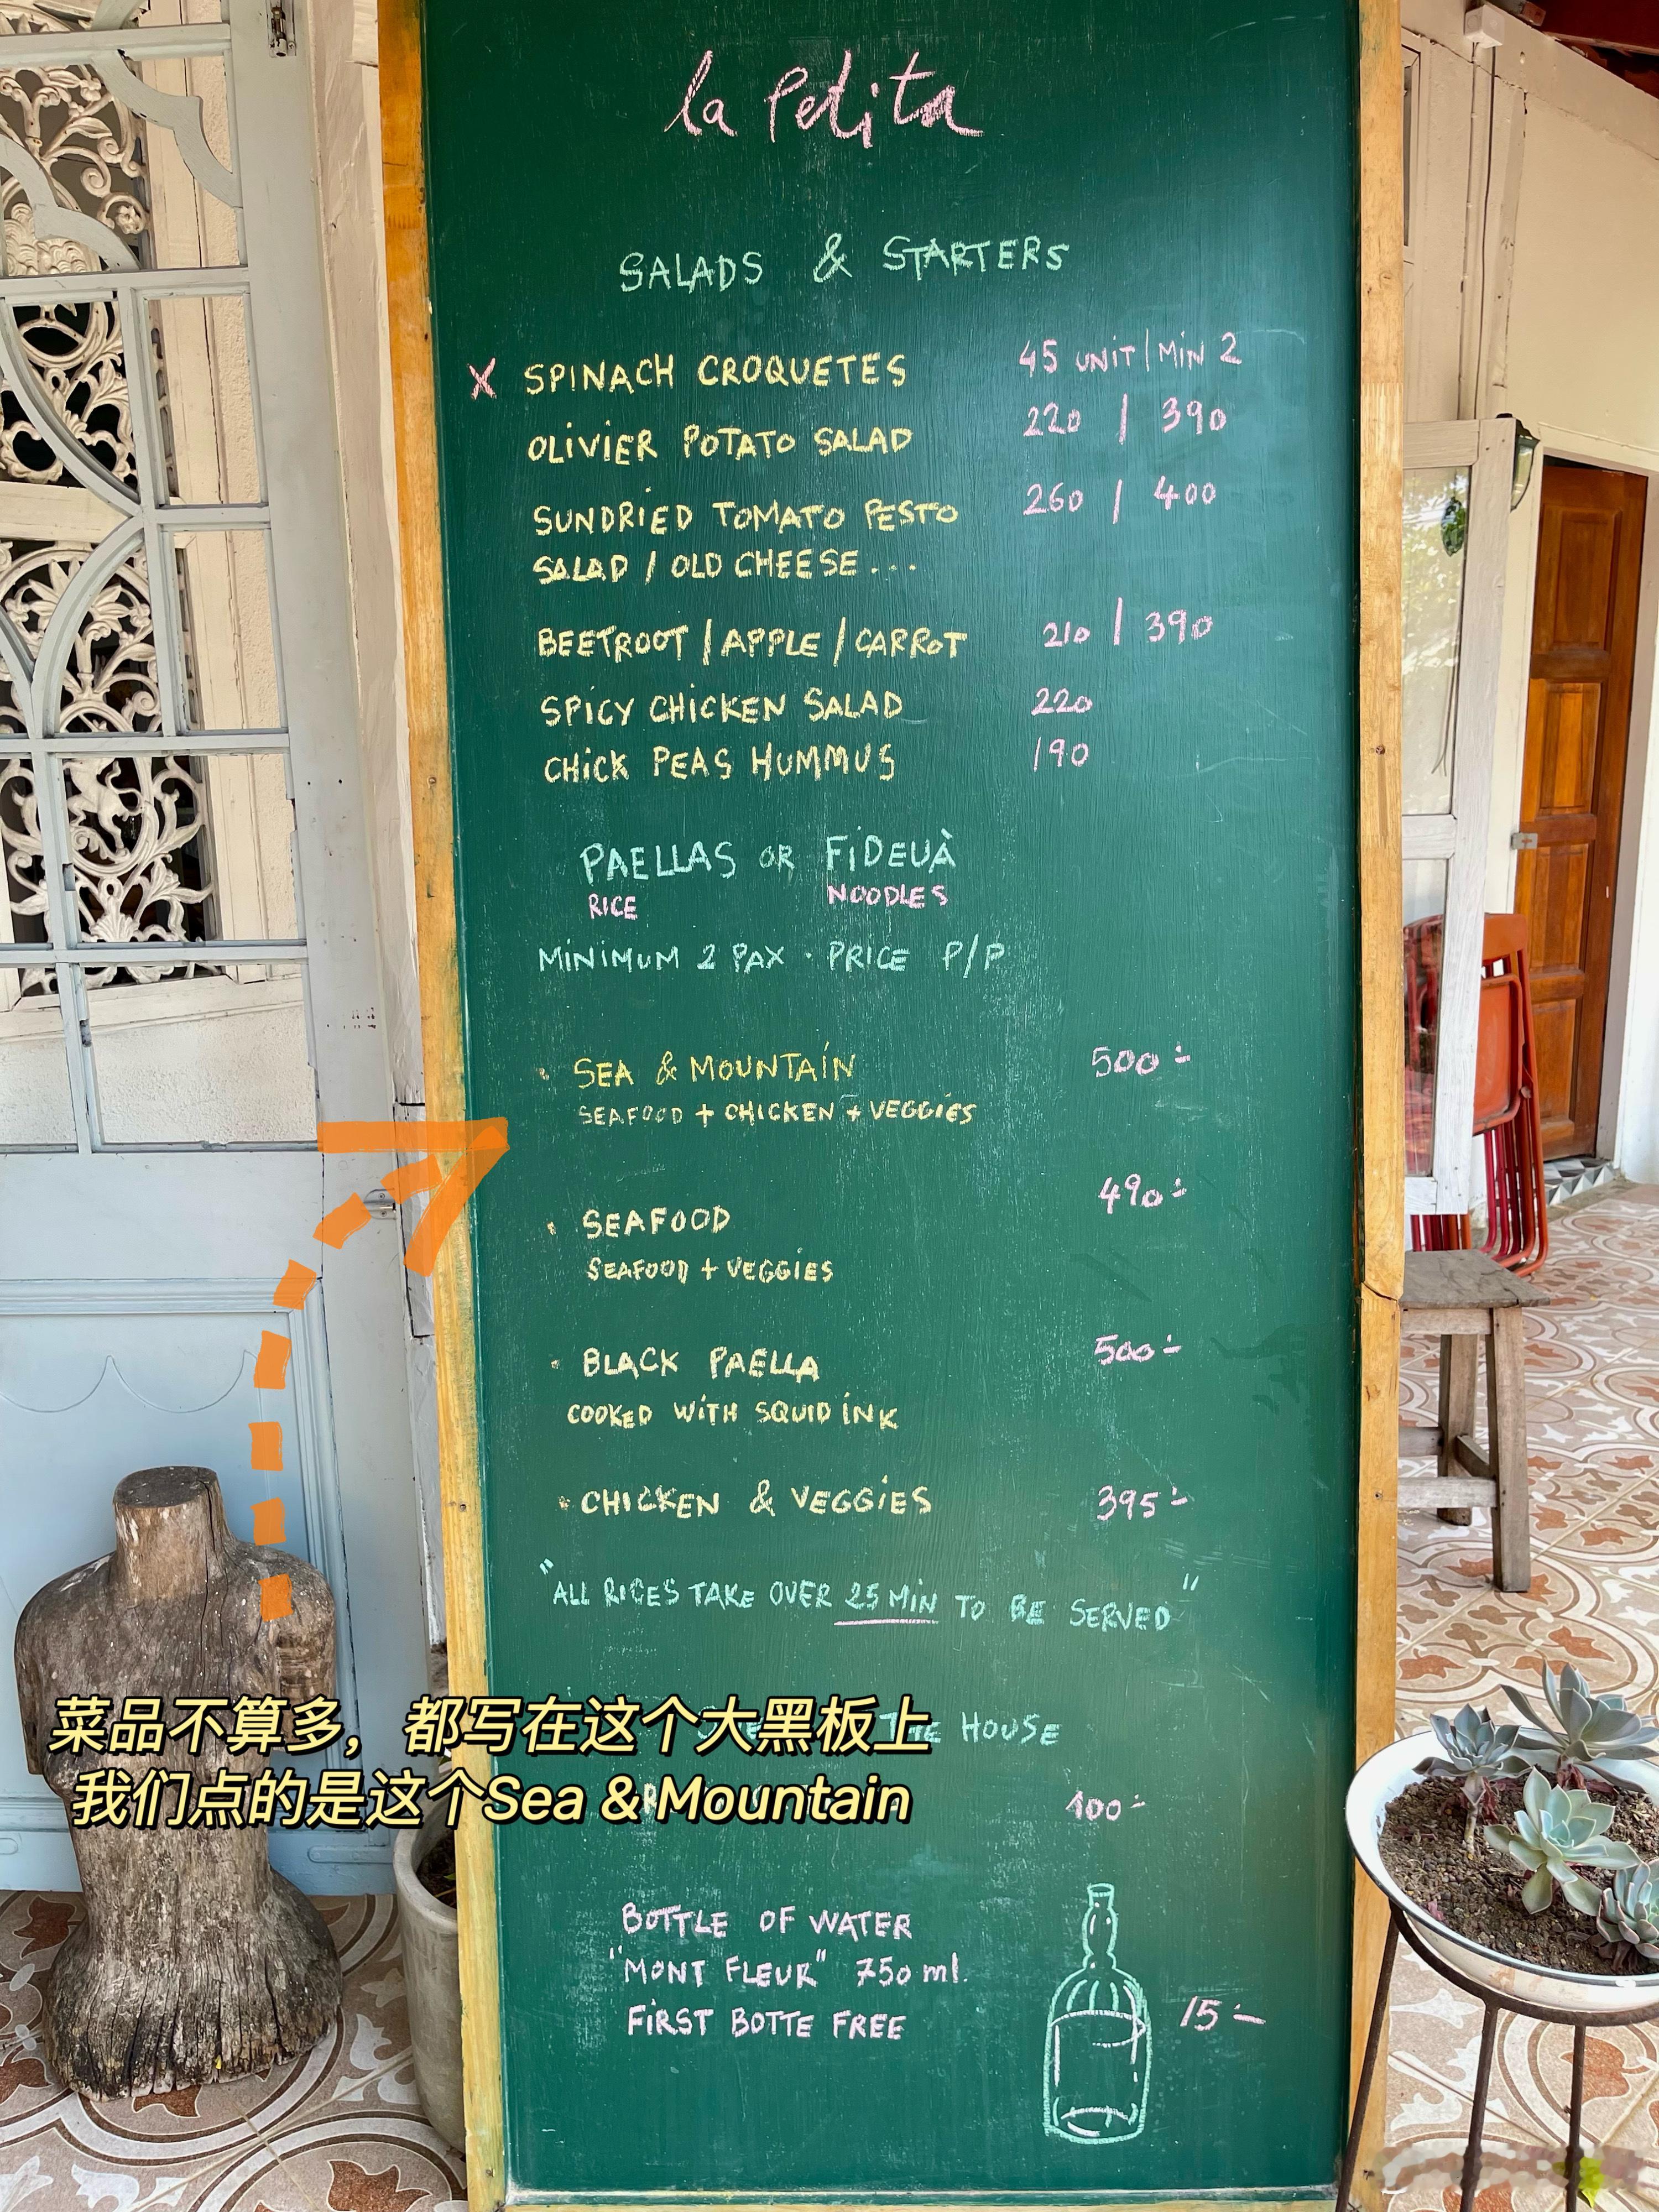 la Petita
SALADS & STARTERS
X SPINACH CROQUETES 45 UNIT/MIN 2
OLIVIER POTATO SALAD 220 / 390
SUNDRIED TOMATO PESTO 260 / 400
SALAD / OLD CHEESE...
BEETROOT / APPLE / CARROT 210 / 390
SPICY CHICKEN SALAD 220
CHICK PEAS HUMMUS 190
PAELLAS OR FIDEUÀ
RICE NOODLES
MINIMUM 2 PAX · PRICE P/P
· SEA & MOUNTAIN 500÷
SEAFOOD + CHICKEN + VEGGIES
· SEAFOOD 490÷
SEAFOOD + VEGGIES
· BLACK PAELLA 500÷
COOKED WITH SQUID INK
· CHICKEN & VEGGIES 395÷
"ALL RICES TAKE OVER 25 MIN TO BE SERVED"
THE HOUSE
菜品不算多，都写在这个大黑板上
我们点的是这个Sea & Mountain
100÷
BOTTLE OF WATER
"MONT FLEUR" 750 ml.
FIRST BOTTE FREE 15÷